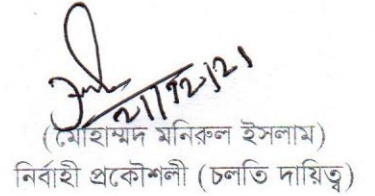 (মোহাম্মদ মনিরুল ইসলাম)
নির্বাহী প্রকৌশলী (চলতি দায়িত্ব)